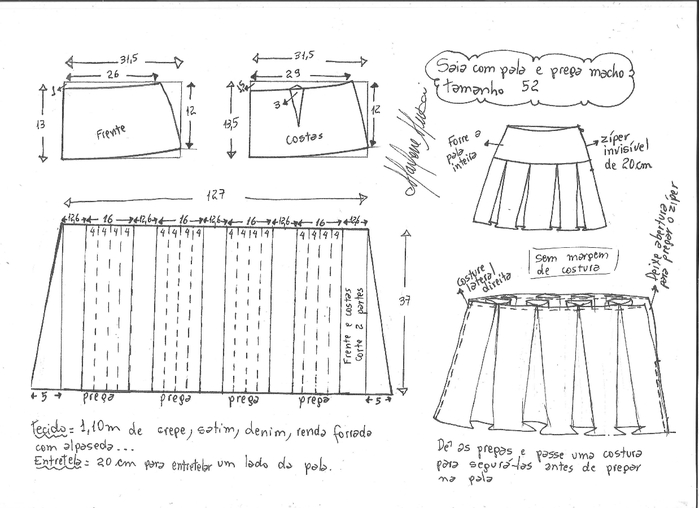 31,5
26
1
13
12
Frente
31,5
29
1,5
3
13,5
12
costas
Saia com pala e prega macho
tamanho 52
Forre a
pala
inteira
zíper
invisível
de 20cm
127
12,6 16 12,6 16 12,6 16 12,6 16 12,6
4 4 4 4 4 4 4 4 4 4 4 4 4 4 4 4
Frente e costas
Corte 2 partes
37
5 prega prega prega prega 5
Sem margem
de costura
costure
lateral
direita
Deixe abertura
para pregar o zíper
Tecido = 1,10m de crepe, setim, denim, renda forrada
com alpaseda...
Entretela = 20 cm para entretelar um lado da pala.
Dê as pregas e passe uma costura
para segurá-las antes de pregar
na pala